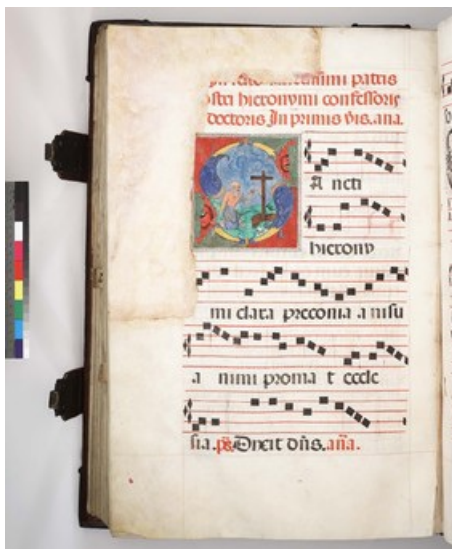 patris
stri hieronymi confessoris
doctoris In primis vis. ana.
S A ncti
hierony
mi clara preconia a nisu
a nimi proma t eccle
sia. ps. Dixit dn̄s. an̄a.